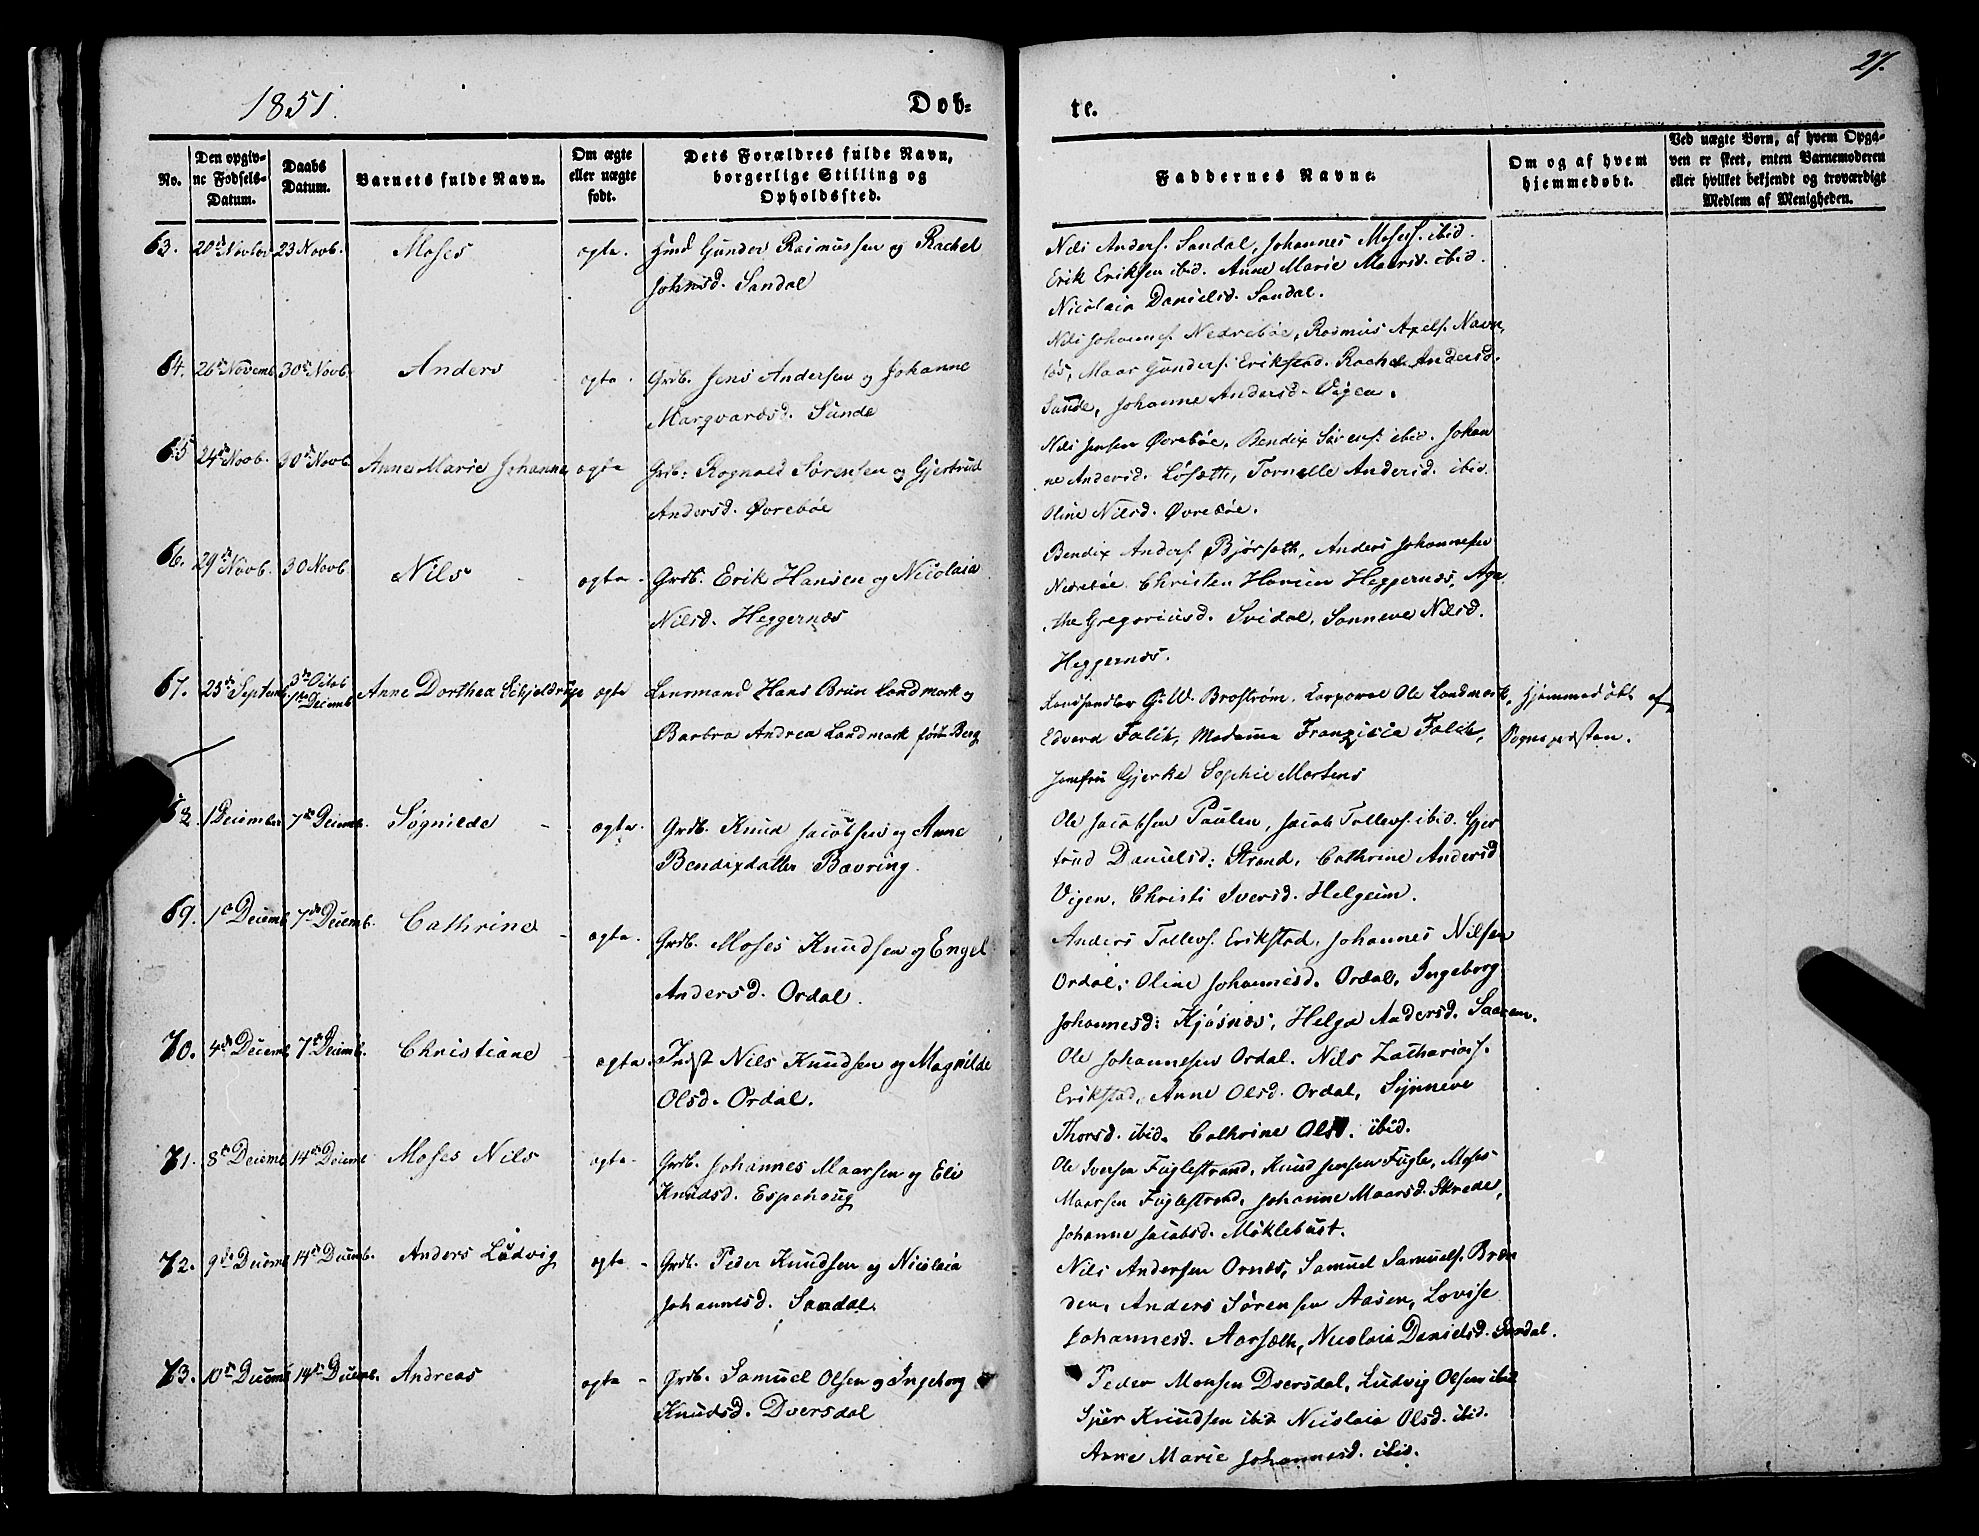 1851.
Døb-
te.
27.
No.
Den opgiv-
ne Fødsels-
Datum.
Daabs
Datum.
Barnets fulde Navn.
Om ægte
eller uægte
født.
Dets Forældres fulde Navn,
borgerlige Stilling og
Opholdssted.
Faddernes Navne.
Om og af hvem
hjemmedøbt.
Ved uægte Børn, af hvem Opga-
ven er skeet, enten Barnemoderen
eller hvilket bekjendt og troværdigt
Medlem af Menigheden.
63. 20de Novbr 23 Novb. Moses ægte. Hmd Gunder Rasmussen og Rachel
Johnsd. Sandal
Nils Anders. Sandal, Johannes Moses. ibid.
Erik Eriksen ibid. Anne Marie Maarsd. ibid.
Nicolaia Danielsd. Sandal.
64. 26de Novemb. 30te Novb. Anders ægte. Grdb. Jens Andersen og Johanne
Marqvardsd. Sunde
Nils Johannes. Nedrebøe, Rasmus Axels. Navn
løs, Maar Gunders. Erikstad. Rachel Andersd.
Sunde, Johanne Andersd. Vigen.
65 24de Novb. 30te Novb. Anne Marie Johanne ægte Grdb. Rognald Sørensen og Gjertrud
Andersd. Øvrebøe
Nils Jensen Øvrebøe, Bendix Sørens. ibid. Johan
ne Andersd. Løsæth, Tornelle Andersd. ibid.
Oline Nilsd. Øvrebøe.
66. 29de Novb. 30 Novb. Nils ægte Grdb. Erik Hansen og Nicolaia
Nilsd. Heggernæs
Bendix Anders. Bjørsæth, Anders Johannesen
Nedrebøe. Christen Heggernæs, Aga
the Gregoriusd. Svidal, Sønneve Nilsd.
Heggernæs.
67. 25de Septemb. 3de Octob. Decemb Anne Dorthea Schjeldrup ægte Lensmand Hans Brun Landmark og
Barbra Andrea Landmark født Berg
Landhandler G. W. Broström, Korporal Ole Landmark,
Edvard Falch, Madame Franzisia Falch,
Jomfru Gjerke Sophie Martens
Hjemmedøbt af
Sognepresten.
68. 1 December 7de Decemb. Søgnilde ægte. Grdb. Knud Jacobsen og Anne
Bendixdatter Bævring.
Ole Jacobsen Paulen, Jacob Tollevs. ibid. Gjer
trud Danielsd: Strand, Cathrine Andersd
Vigen, Christi Iversd. Helgeim.
69. 1ste Decemb. 7de Decemb. Cathrine ægte. Grdb. Moses Knudsen og Engel
Andersd. Ordal.
Anders Tollevs. Erikstad, Johannes Nilsen
Ordal, Oline Johannesd. Ordal, Ingeborg
Johannesd: Kjøsnæs, Helga Andersd.
70. 4de Decemb. 7de Decemb. Christiane ægte. Indst Nils Knudsen og Magnilde
Olsd. Ordal.
Ole Johannesen Ordal. Nils Zacharias.
Erikstad, Anne Olsd. Ordal, Synneve
Thorsd. ibid. Cathrine Olsd. ibid.
71. 8de Decemb 14de Decemb Moses Nils ægte. Grdb. Johannes Maarsen og Eli
Knudsd. Espehoug
Ole Iversen Fuglestrand, Knud Jensen Fugle, Moses
Maarsen Fuglestrand, Johanne Maarsd. Skrede,
Johanne Jacobsd. Møklebust.
72. 9de Decemb 14de Decemb. Anders Ludvig ægte Grdb. Peder Knudsen og Nicolaia
Johannesd. Sandal.
Nils Andersen Ornæs, Samuel Samuels. Bræn
den, Anders Sørensen Aasen, Lovise
Johannesd. Aarsæth, Nicolaia Danielsd. Sandal.
73. 10de Decemb 14de Decemb. Andreas ægte Grdb. Samuel Olsen og Ingeborg
Knudsd. Dversdal
Peder Monsen Dversdal, Ludvig Olsen ibid
Sjur Knudsen ibid Nicolaia Olsd. ibid.
Anne Marie Johannesd. ibid.